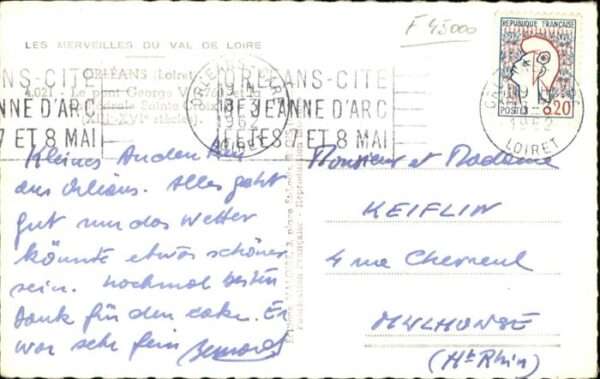 F 45000
LES MERVEILLES DU VAL DE LOIRE
ORLÉANS (Loiret)
4.021 - Le pont George V
Sainte Croix
(XIII-XVIe siècles)
ANS-CITE
NNE D'ARC
7 ET 8 MAI
ORLEANS-CITE
DE JEANNE D'ARC
FETES 7 ET 8 MAI
1962
LOIRET
REPUBLIQUE FRANÇAISE
POSTES 0,20
1962
LOIRET
Kleines Andenken
aus Orléans. Alles geht
gut nur das Wetter
könnte etwas schöner
sein. Nochmal besten
Dank für den cake. Er
war sehr fein
Monsieur et Madame
KEIFLIN
4 rue Chevreul
MULHOUSE
(Ht Rhin)